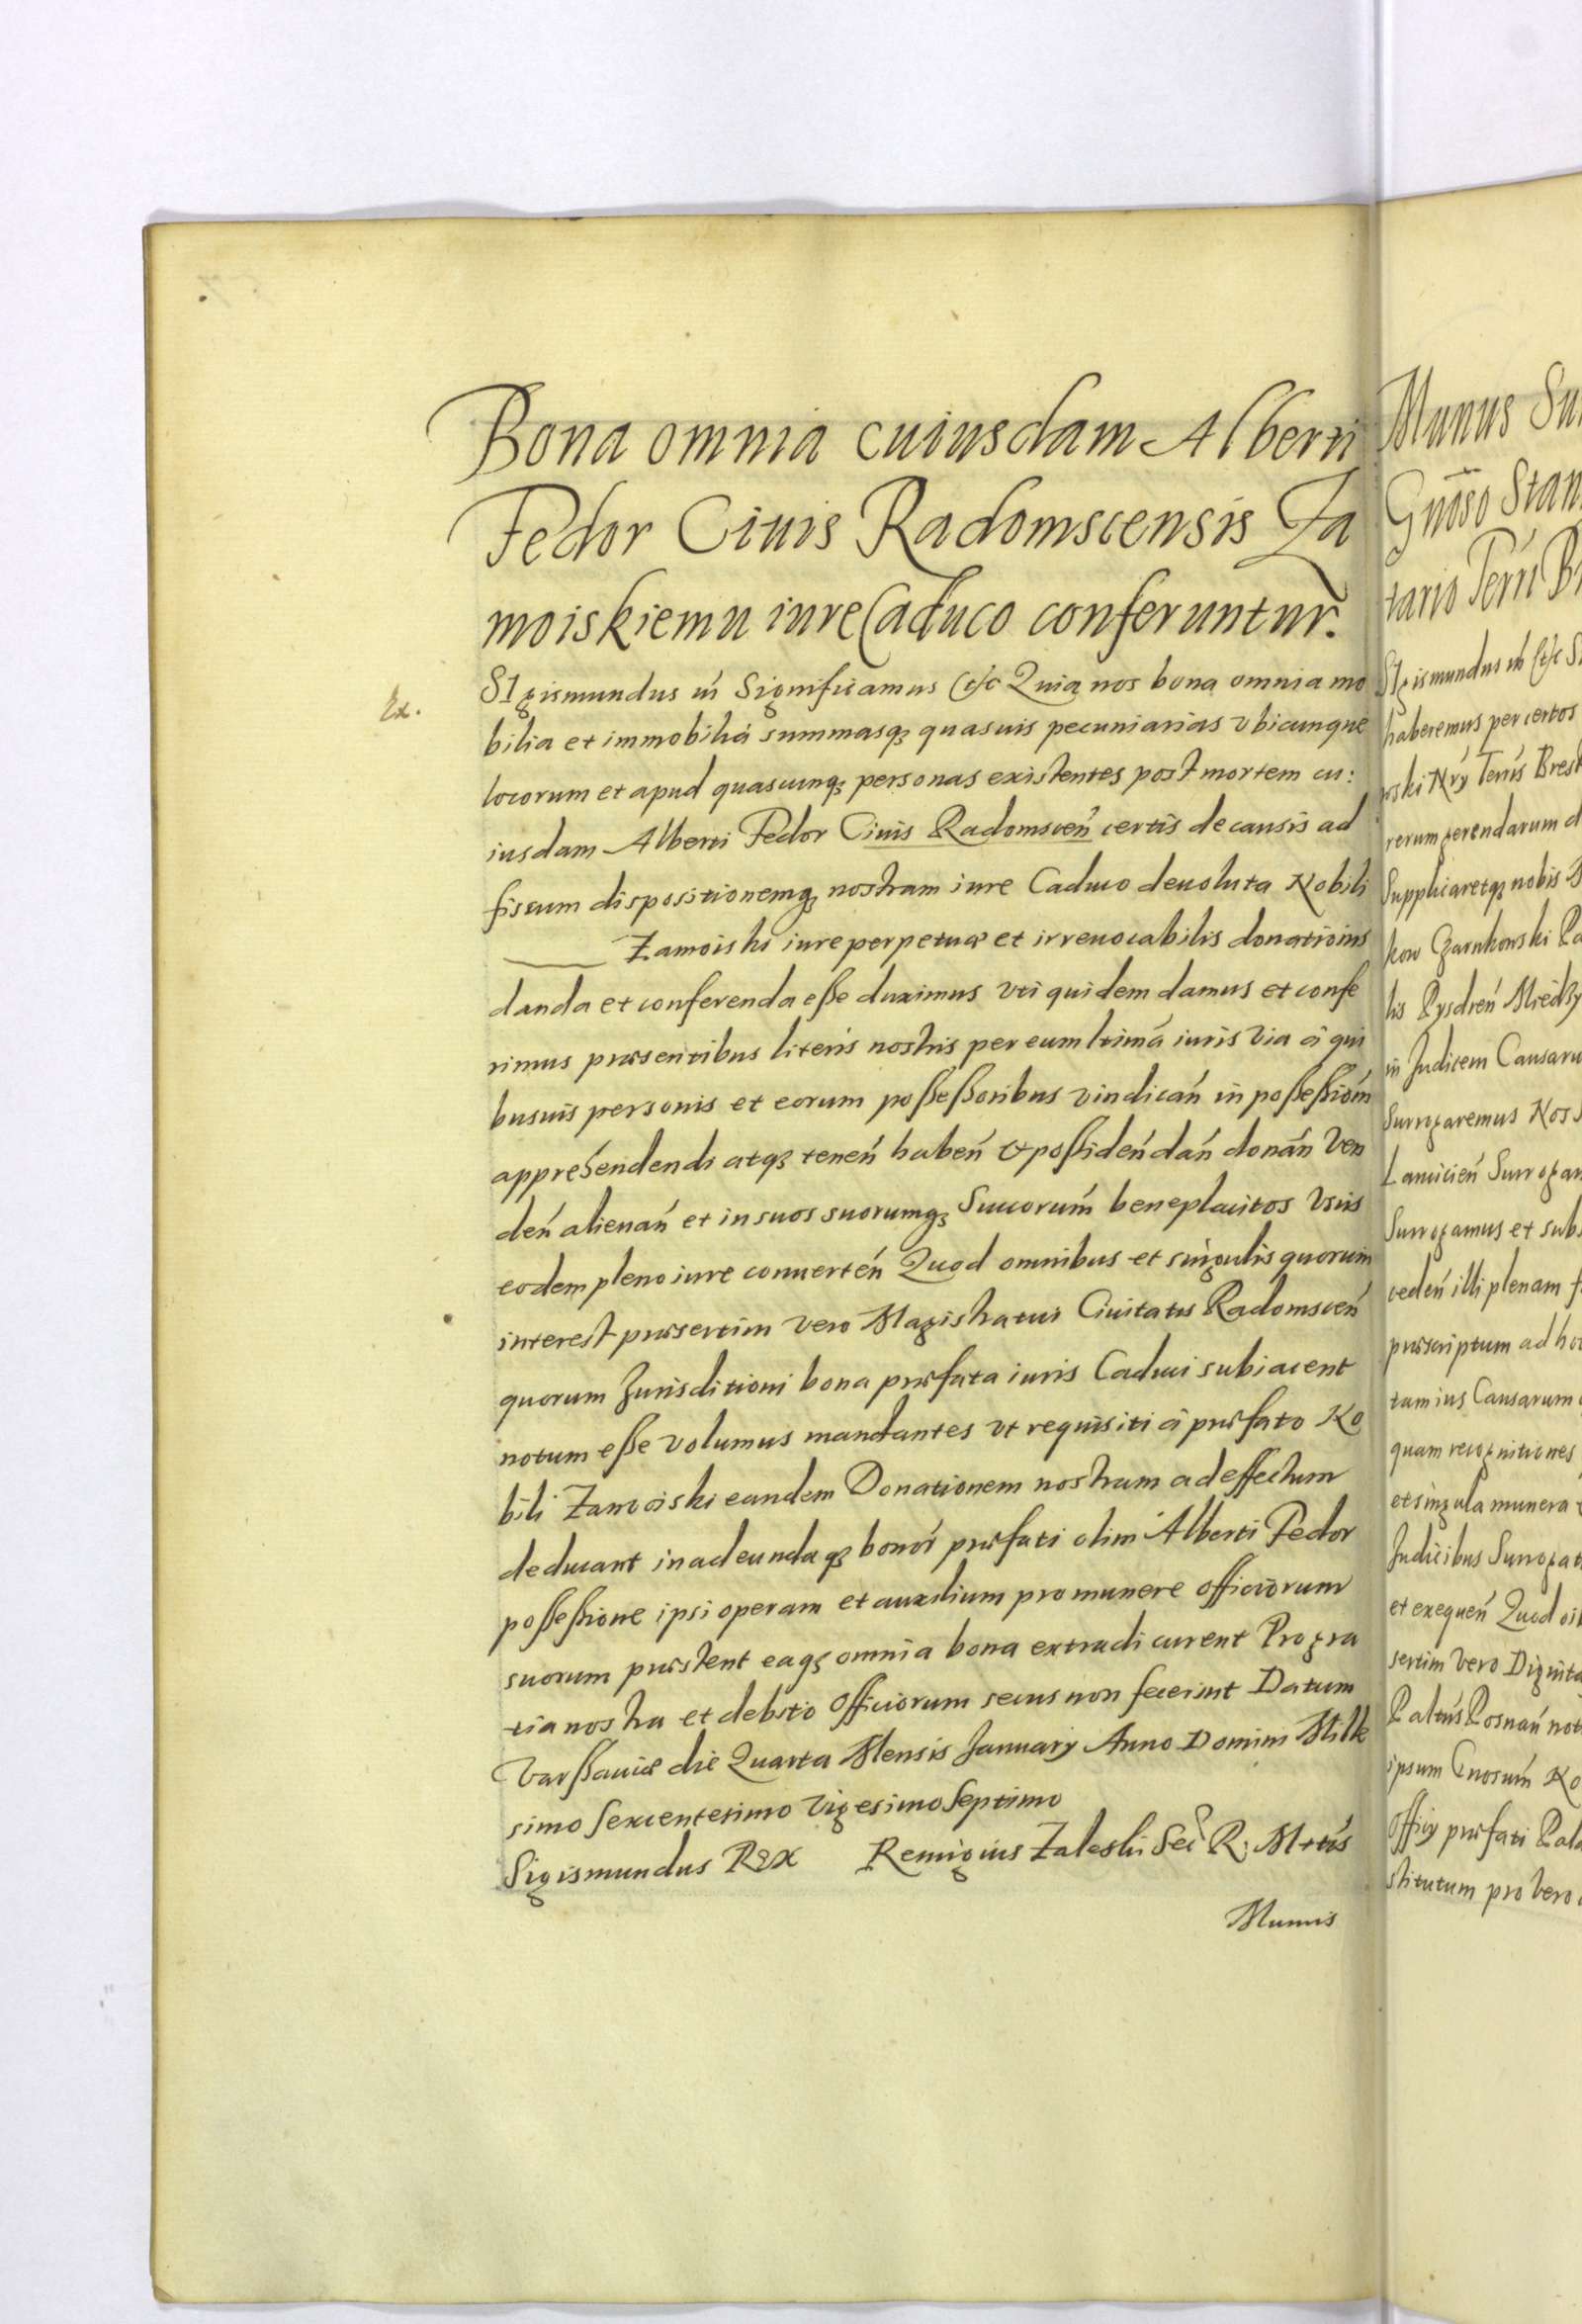 Bona omnia cuiusdam Alberti
Fedor Ciuis Radomscensis Za
moiskiemu iure Caduco conferuntur.
Ex.
SIgismundus etc Significamus etc Quia nos bona omnia mo
bilia et immobilia summasqꝫ quasuis pecuniarias vbicunque
locorum et apud quascunqꝫ personas existentes post mortem cu:
iusdam Alberti Fedor Ciuis Radomscen̄ certis de causis ad
fiscum dispositionemqꝫ nostram iure Caduco deuoluta Nobili
Zamoiski iure perpetuæ et irreuocabilis donationis
danda et conferenda eße duximus vti quidem damus et confe
rimus præsentibus literis nostris per eum ltimá iuris via á qui
busuis personis et eorum poßeßoribus vindicań in poßeßioḿ
apprehendendi atqꝫ teneń habeń & poßideń dań donań Ven
deń alienań et in suos suorumqꝫ Succorum̄ beneplacitos Vsus
eodem pleno iure conuerteń Quod omnibus et singulis quorum
interest præsertim vero Magistratui Ciuitatis Radomsceń
quorum Jurisditioni bona præfata iuris Caduci subiacent
notum eße volumus mandantes vt requisiti á præfato No
bili Zamoiski eandem Donationem nostram ad effectum
deducant in adeundaqꝫ bonoŕ præfati olim Alberti Fedor
poßeßione ipsi operam et auxilium pro munere officiorum
suorum præstent eaqꝫ omnia bona extradi curent Pro gra
tia nostra et debito Officiorum secus non fecerint Datum
Varßauiæ die Quarta Mensis January Anno Domini Mille
simo Sexcentesimo Vigesimo Septimo
Sigismundus REX Remigius Zaleski Sec R: Mttis
Munus
Munus
Gnoso Stan
taris Terrī
SIgismundus
haberemus per certos
rerum gerendarum d
Supplicaretqꝫ nobis
kow Czarnkowski
in Judicem Causaru
Surrogaremus Nos
Surrogamus et sub
ceden̄ illi plenam
præscriptum ad ho
tum ius Causarum
quam recognitiones
et singula munera
Judicibus Surrogat
et exequen̄ Quod
sertim Vero Dignita
Posnan̄ not
ipsum Gnosum̄ No
Officy præfati Pala
stitutum pro Vero